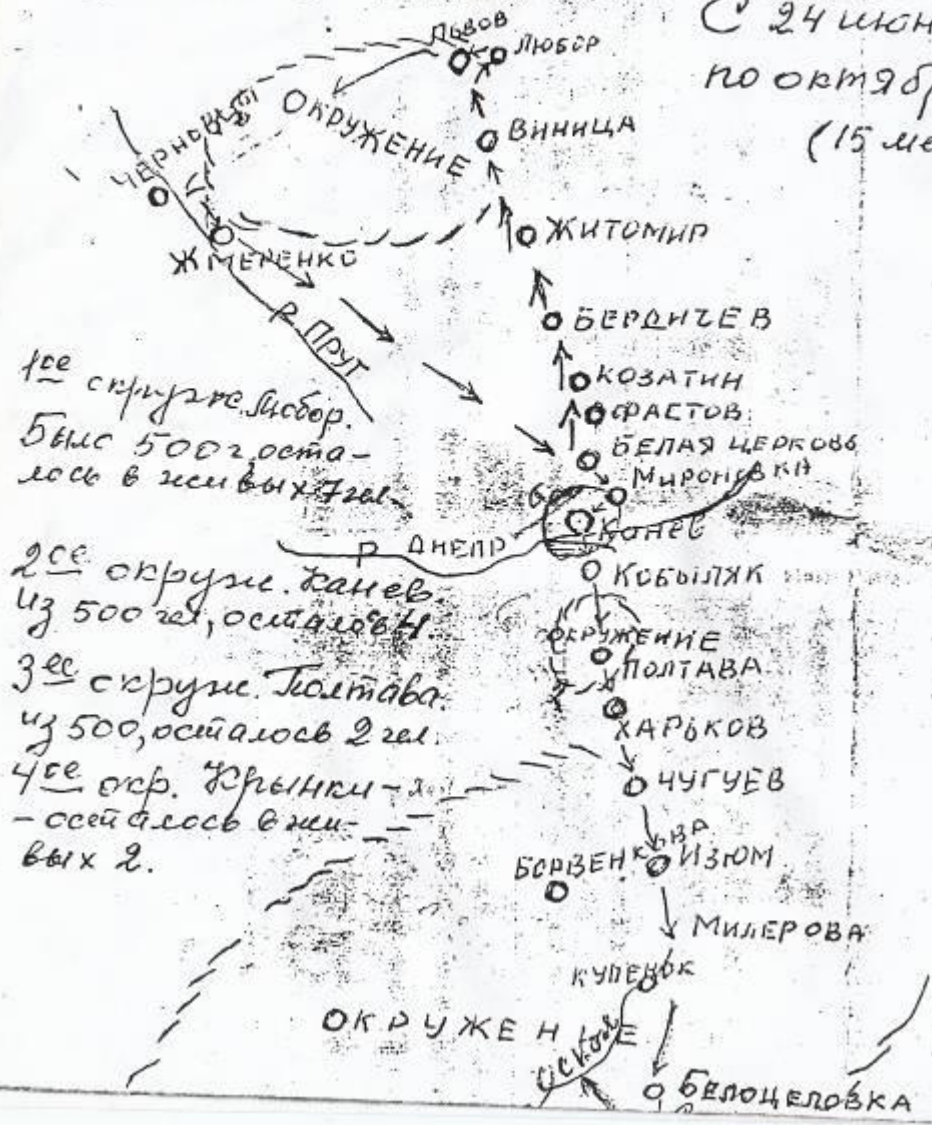 С 24 июн
по октяб
(15 ме
Львов
Любор
Окружение
Виница
Черновцы
Житомир
Жмеренко
р. Пруг
Бердичев
Козатин
Фастов
Белая Церковь
Мироновка
Канев
р Днепр
Кобыляк
Окружение
Полтава
Харьков
Чугуев
Борвенкъва
Изюм
Милерова
Купенск
Окружение
Оскол
Белоцеловка
1ое окруже. Любор.
Было 500ч, оста-
лось в живых 7 чел.
2ое окруж. Канев.
из 500 чел, осталось 4.
3ее окруж. Полтава.
из 500, осталось 2 чел.
4ое окр. Крынки-
- осталось в жи-
вых 2.